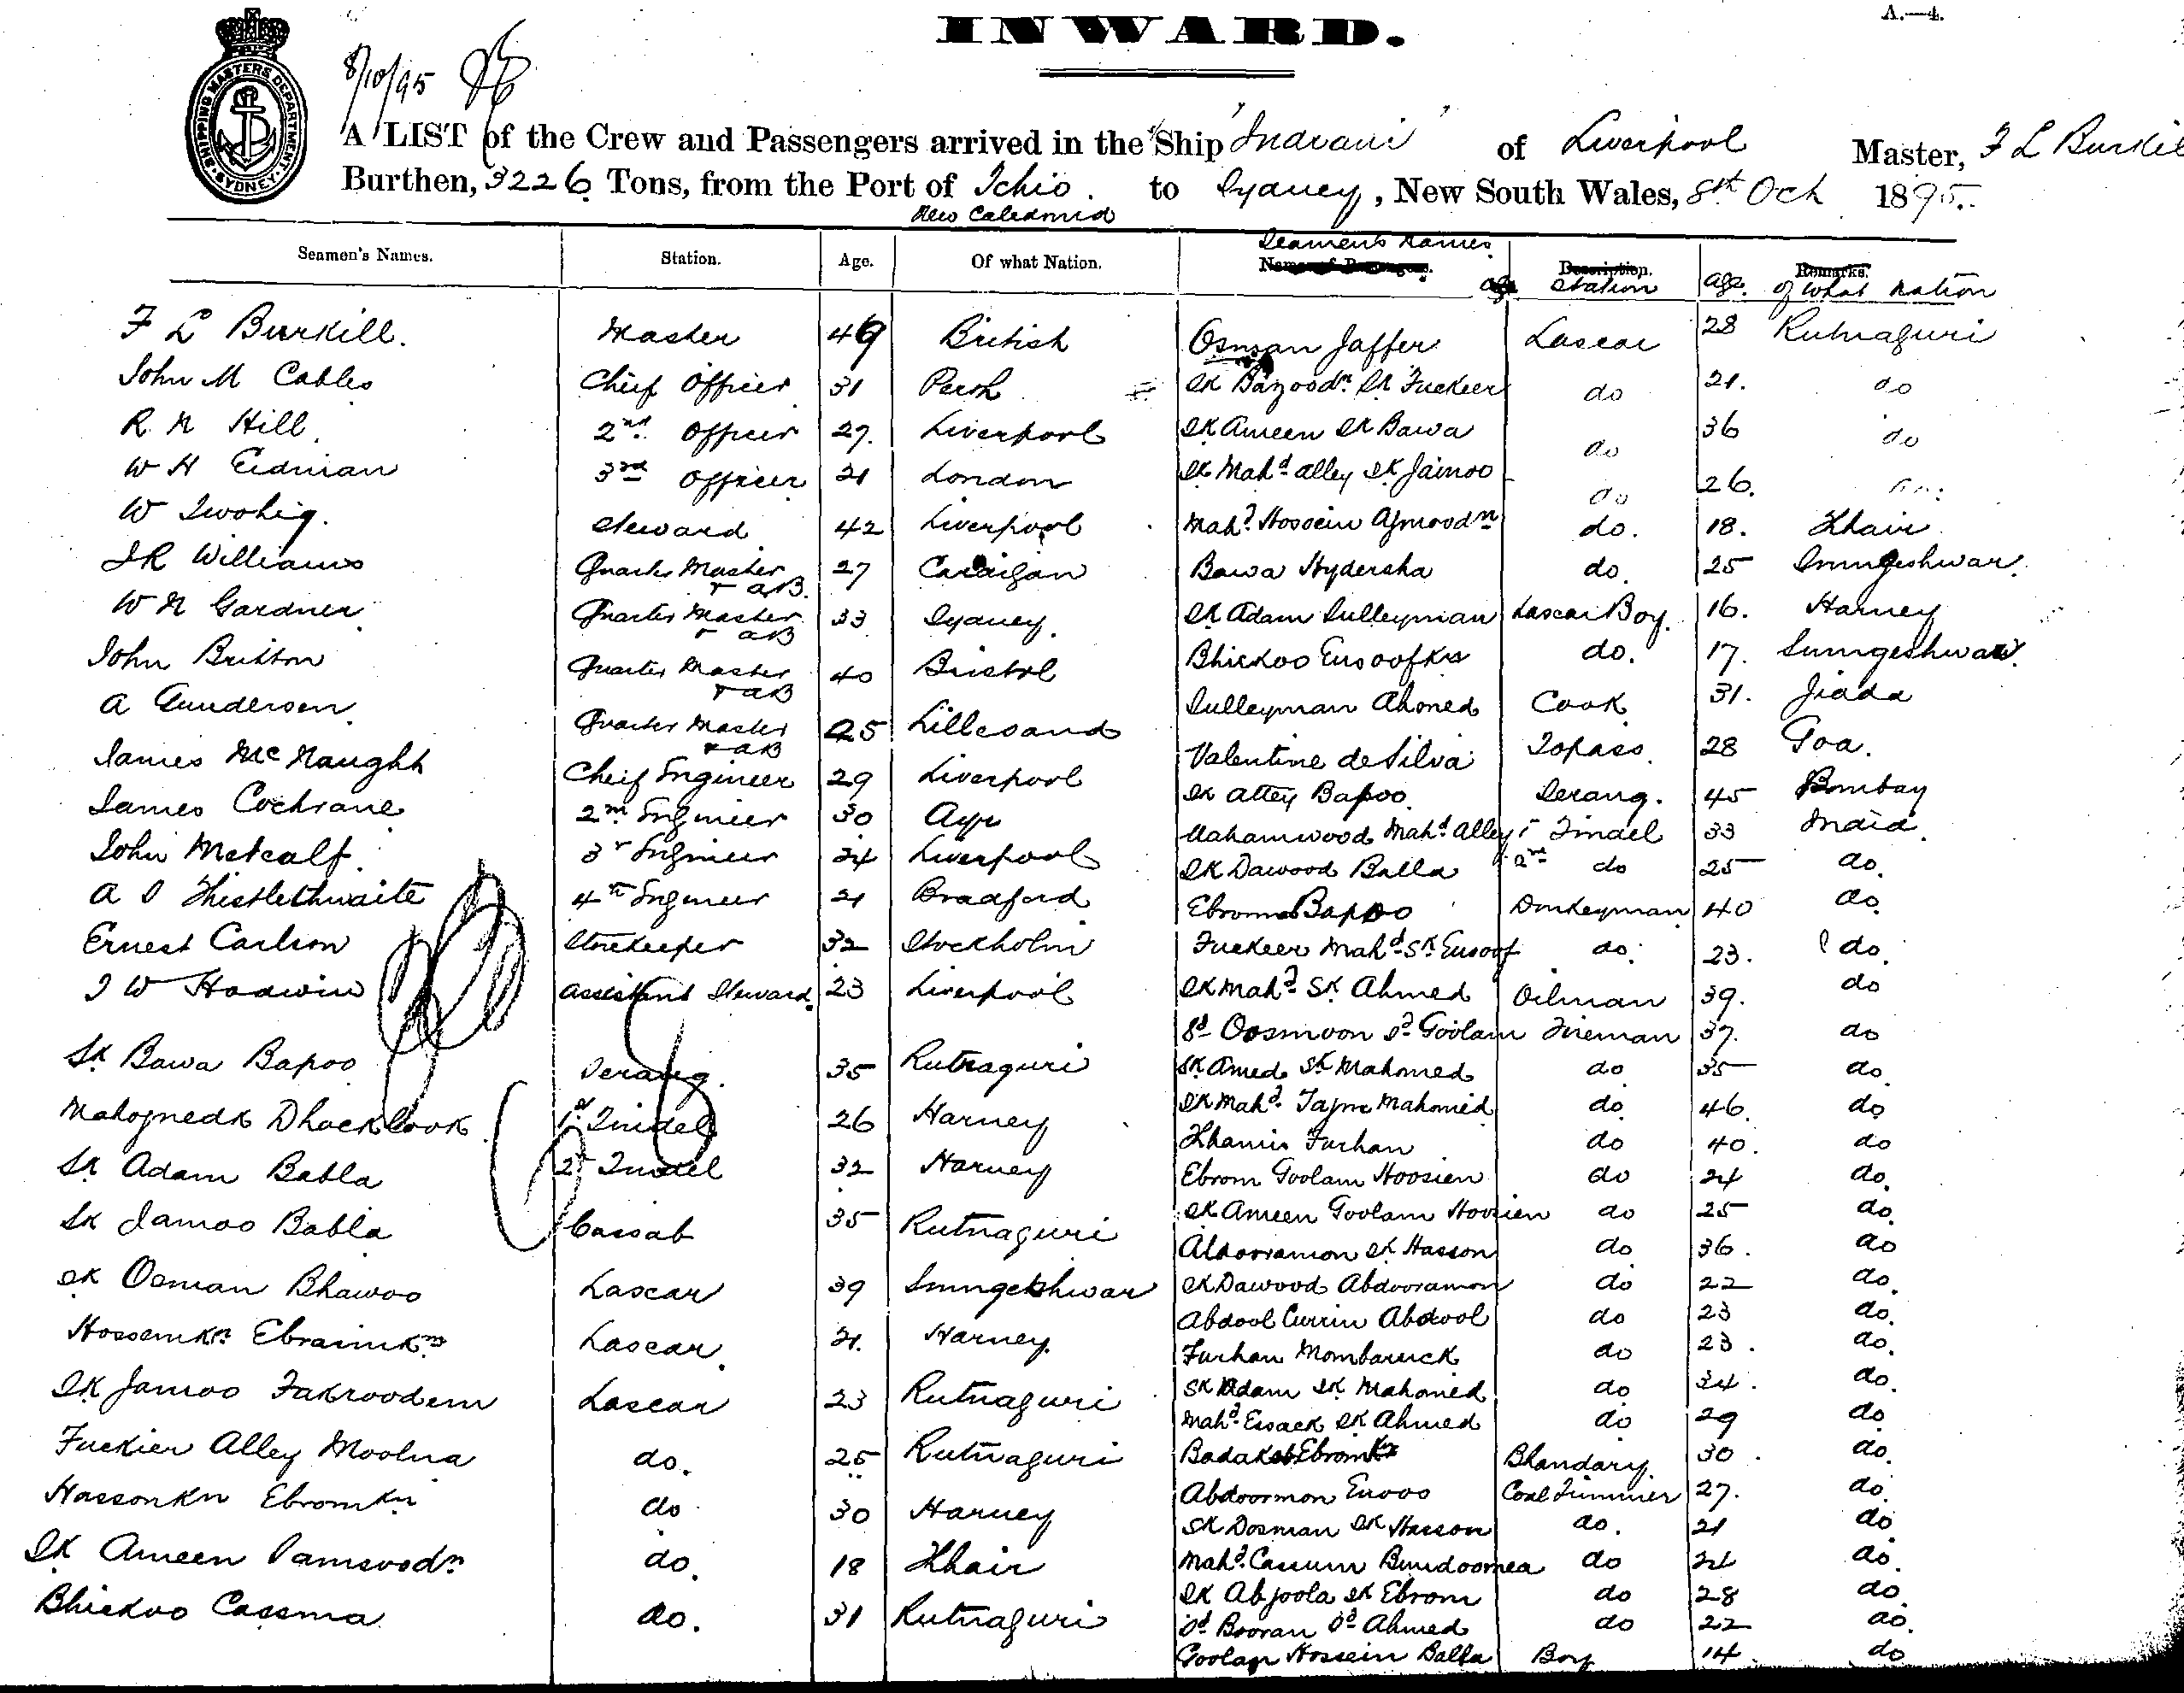 INWARD.
A.—4.
SHIPPING MASTERS DEPARTMENT SYDNEY
8/10/95
A LIST of the Crew and Passengers arrived in the Ship "Indrani" of Liverpool Master, F L Burkill
Burthen, 3226 Tons, from the Port of Tchio. to Sydney, New South Wales, 8th Oct 1895.
New Caledonia
Seamen's Names. Station. Age. Of what Nation. Seamen's Names Station age. of what nation
F L Burkill. Master 49 British Osman Jaffer Lascar 28 Rutnaguri
John M Cables Chief Officer 31 Perth Sk Bazoodn Sk Fuckeer do 21. do
R. N Hill. 2nd Officer 29. Liverpool Sk Ameen Sk Bawa do 36 do
W H Eidman 3rd Officer 21 London Sk Mahd alley Sk Jainoo do 26. do.
W Twohig. Steward 42 Liverpool Mahd Hossein do. 18. Khair
J R Williams Quarter Master + AB. 27 Cardigan Bawa Hydersha do. 25 Sumgeshwar.
W N Gardner Quarter Master + AB 33 Sydney. Sk Adam Sulleyman Lascar Boy. 16. Harney
John Britton Quarter Master + AB 40 Bristol Bhickoo Eusoofkn do. 17. Sumgeshwar.
A Gundersen. Quarter Master + AB 25 Lillesand Sulleyman Ahmed Cook 31. Jiada
James McNaught Cheif Engineer 29 Liverpool Valentine de Silva Topass. 28 Goa.
James Cochrane 2nd Engineer 30 Ayr Sk Alley Bapoo. Serang. 45 Bombay
John Metcalf. 3r Engineer 24 Liverpool Mahamwood Mahd Alley 1st Tindel 33 India.
A O Thistlethwaite 4th Engineer 21 Bradford Sk Dawood Balla 2nd do 25 do.
Ernest Carlson Storekeeper 32 Stockholm Ebrom Bapoo Donkeyman 40 do.
J W Hadwin Assistant Steward. 23 Liverpool Fuckeer Mahd Sk Eusoof do. 23. do.
Sk Mahd Sk Ahmed Oilman 39. do
Sd Oosmoon Sd Goolam Fireman 37. do
Sk Bawa Bapoo Serang. 35 Rutnaguri Sk Amed Sk Mahomed do 35 do.
Dhackbook 1st Tindel 26 Harney Sk Mahd Tajm Mahomed do. 46. do
Khamis Furhan do 40. do
Sk Adam Babla 2d Tindel 32 Harney Ebrom Goolam Hoosien do 24 do.
Sk Jamoo Babla Cassab 35 Rutnaguri Sk Ameen Goolam Hoosien do 25 do.
Abdooramon Sk Hasson do 36. do
Sk Osman Bhawoo Lascar 39 Sumgeshwar Sk Dawood Abdooramon do 22 do.
Abdool Currim Abdool do 23 do.
Hossenkn Ebraimkn Lascar. 21. Harney. Furhan Mombaruck do 23. do.
Sk Jamoo Fakroodem Lascar 23 Rutnaguri Sk Adam Sk Mahomed do 34. do.
Mahd Essack Sk Ahmed do 29 do.
Fuckier Alley Moolna do. 25 Rutnaguri Ebromkn Bhandary. 30. do.
Hassonkn Ebromkn do 30 Harney Abdoormon Eusoo Coal Trimmer 27. do.
Sk Dosman Sk Hasson do. 21 do
Sk Ameen do. 18 Khair Mahd Cassum Bundoomea do 24 do.
Bhickoo Cassma do. 31 Rutnaguri Sk Abjoola Sk Ebrom do 28 do.
Sd Booran Sd Ahmed do 22 do.
Goolam Hossein Balla Boy 14 do